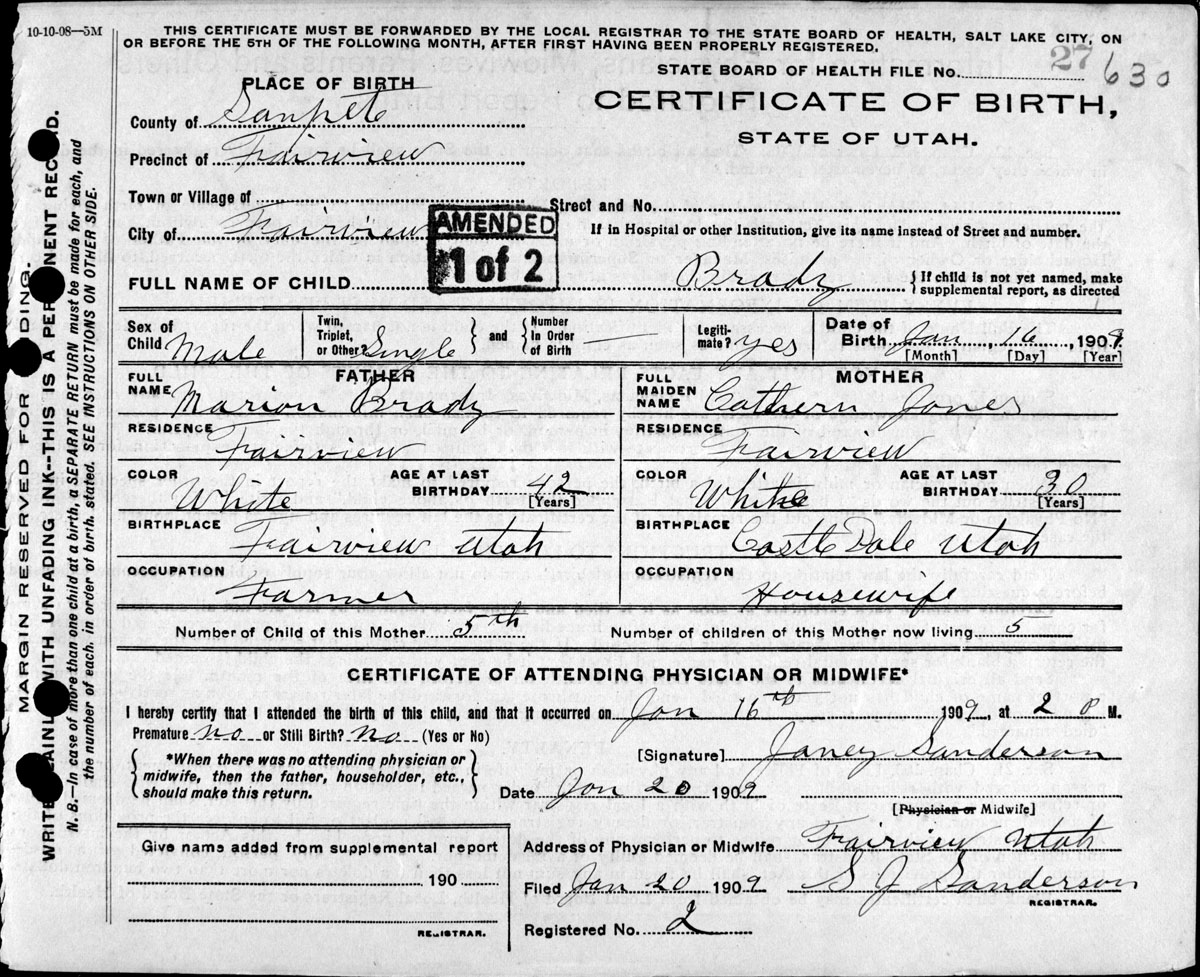 10-10-08—5M
THIS CERTIFICATE MUST BE FORWARDED BY THE LOCAL REGISTRAR TO THE STATE BOARD OF HEALTH, SALT LAKE CITY, ON
OR BEFORE THE 5TH OF THE FOLLOWING MONTH, AFTER FIRST HAVING BEEN PROPERLY REGISTERED.
27 630
STATE BOARD OF HEALTH FILE No.
PLACE OF BIRTH
CERTIFICATE OF BIRTH,
STATE OF UTAH.
County of Sanpete
Precinct of Fairview
Town or Village of
Street and No.
City of Fairview
If in Hospital or other Institution, give its name instead of Street and number.
AMENDED
1 of 2
FULL NAME OF CHILD Brady
{ If child is not yet named, make
supplemental report, as directed
Sex of
Child Male
Twin,
Triplet,
or Other? Single
and
Number
In Order
of Birth —
Legiti-
mate? yes
Date of
Birth Jan, 16, 1909
[Month] [Day] [Year]
FATHER
FULL
NAME Marion Brady
RESIDENCE
Fairview
COLOR
White
AGE AT LAST
BIRTHDAY 42
[Years]
BIRTHPLACE
Fairview Utah
OCCUPATION
Farmer
MOTHER
FULL
MAIDEN
NAME Cathern Jones
RESIDENCE
Fairview
COLOR
White
AGE AT LAST
BIRTHDAY 30
[Years]
BIRTHPLACE
Castle Dale Utah
OCCUPATION
Housewife
Number of Child of this Mother 5th
Number of children of this Mother now living 5
CERTIFICATE OF ATTENDING PHYSICIAN OR MIDWIFE*
I hereby certify that I attended the birth of this child, and that it occurred on Jan 16th 1909, at 2 P M.
Premature no or Still Birth? No (Yes or No)
*When there was no attending physician or
midwife, then the father, householder, etc.,
should make this return.
[Signature] Janey Sanderson
Date Jan 20 1909
[Physician or Midwife]
Give name added from supplemental report
190
REGISTRAR.
Address of Physician or Midwife Fairview Utah
Filed Jan 20 1909 S J Sanderson
REGISTRAR.
Registered No. 2
MARGIN RESERVED FOR DING.
WRITE LAINL WITH UNFADING INK--THIS IS A PER NENT REC D.
N. B.—In case of more than one child at a birth, a SEPARATE RETURN must be made for each, and
the number of each, in order of birth, stated. SEE INSTRUCTIONS ON OTHER SIDE.